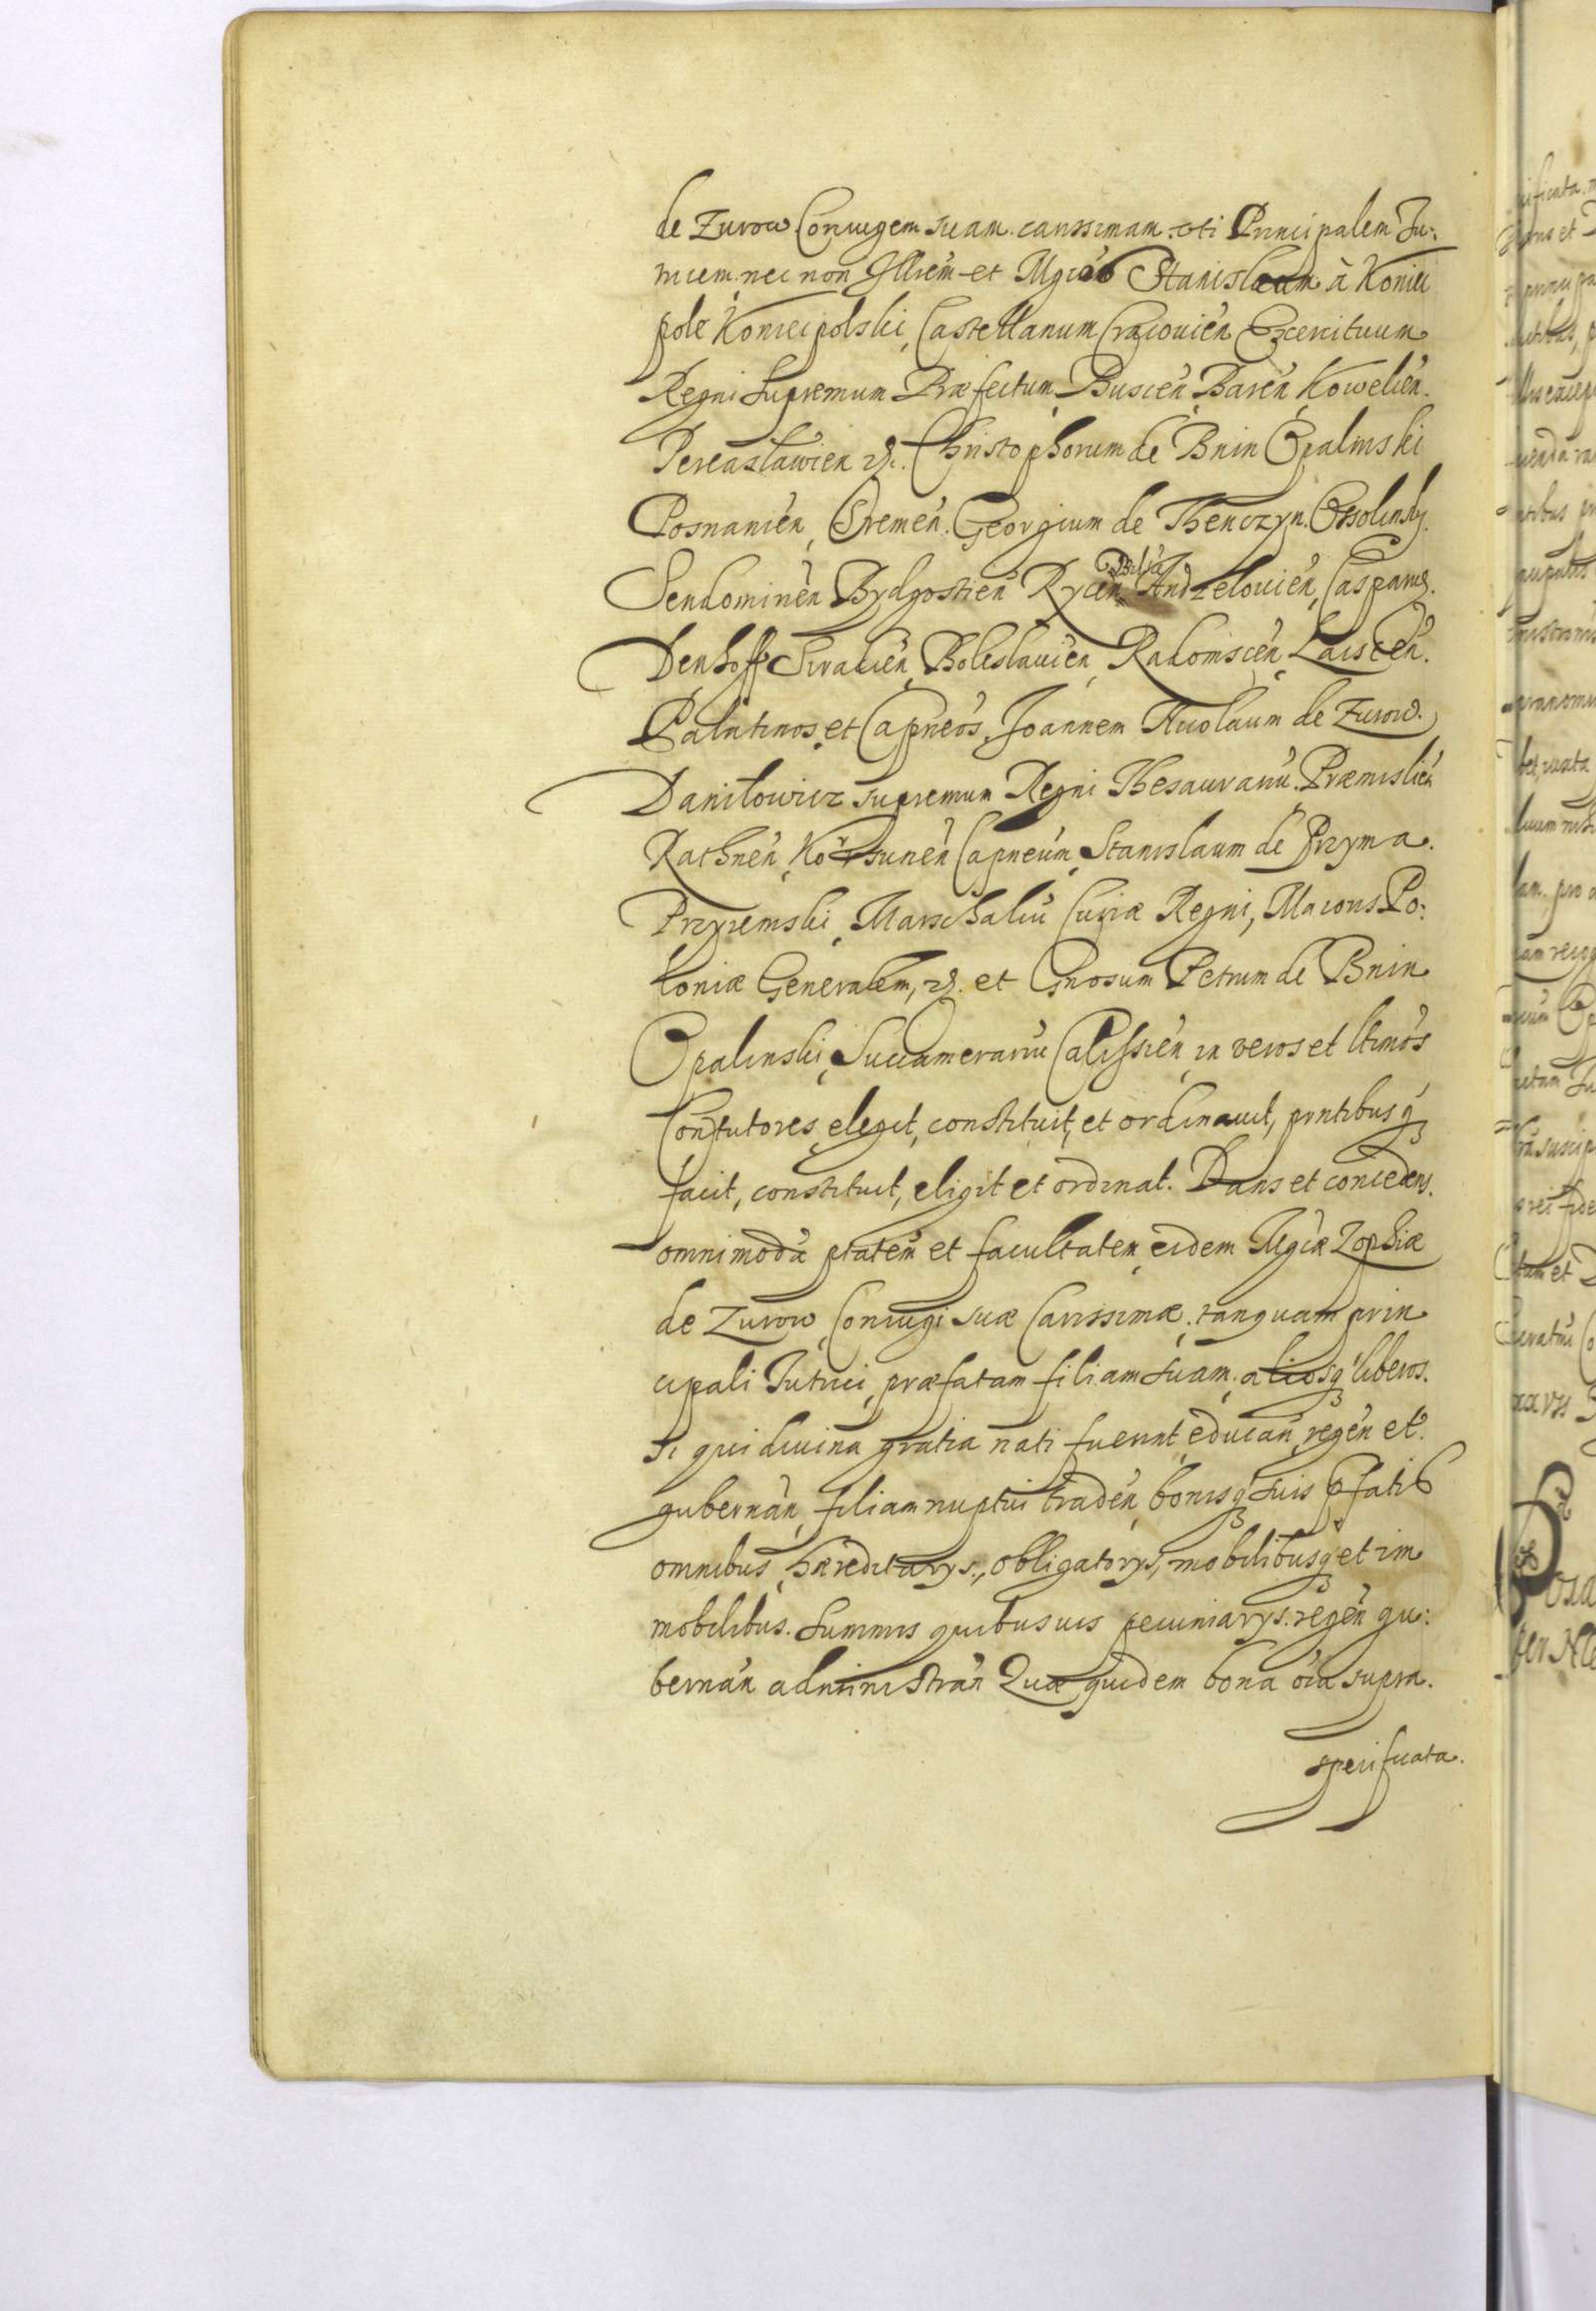 de Zurow Coniugem suam carissimam uti Principalem Tu:
tricem nec non Illrem et Mgcos Stanislaum à Koniec
pole Koniecpolski, Castellanum Cracouien Exercituum
Regni Supremum Præfectum, Buscen, Baren, Kowelien
Pereaslawien &c. Christophorum de Bnin Opalinski
Posnanien, Sremen. Georgium de Thenczyn Ossolinsky
Sendomirien Bydgostien Rycen Andzelouien, Casparum
Denhoff Siradien, Boleslauien, Radomscen, Laiscen.
Palatinos et Capneos, Joannem Nicolaum de Zurow
Daniłowicz supremum Regni Thesaurariu. Præmislien
Rathnen, Korsunen Capneum, Stanislaum de Przyma
Przyiemski, Marschalcu Curiæ Regni, Maioris Po:
loniæ Generalem, &c. et Gnosum Petrum de Bnin
Opalinski, Succamerariu Calissien, in veros et ltimos
Contutores elegit, constituit, et ordinauit, pntibusq3
facit, constituit, eligit et ordinat. Dans et concedens
omnimodà ptatem et facultatem, eidem Mgcæ Zophiæ
de Zurow, Coniugi suæ Carissimæ, tanquam prin
cipali Tutrici, præfatam filiam suam, aliosq3 liberos.
si qui diuina gratia nati fuerint, educan, regen et
gubernan, filiam nuptui traden, bonisq3 suis pfatis
omnibus, hæreditarys, obligatorys, mobilibusq3 et im
mobilibus. Summis quibusuis pecuniarys. regen gu:
bernan administran Quæ quidem bona oia supra.
specificata.